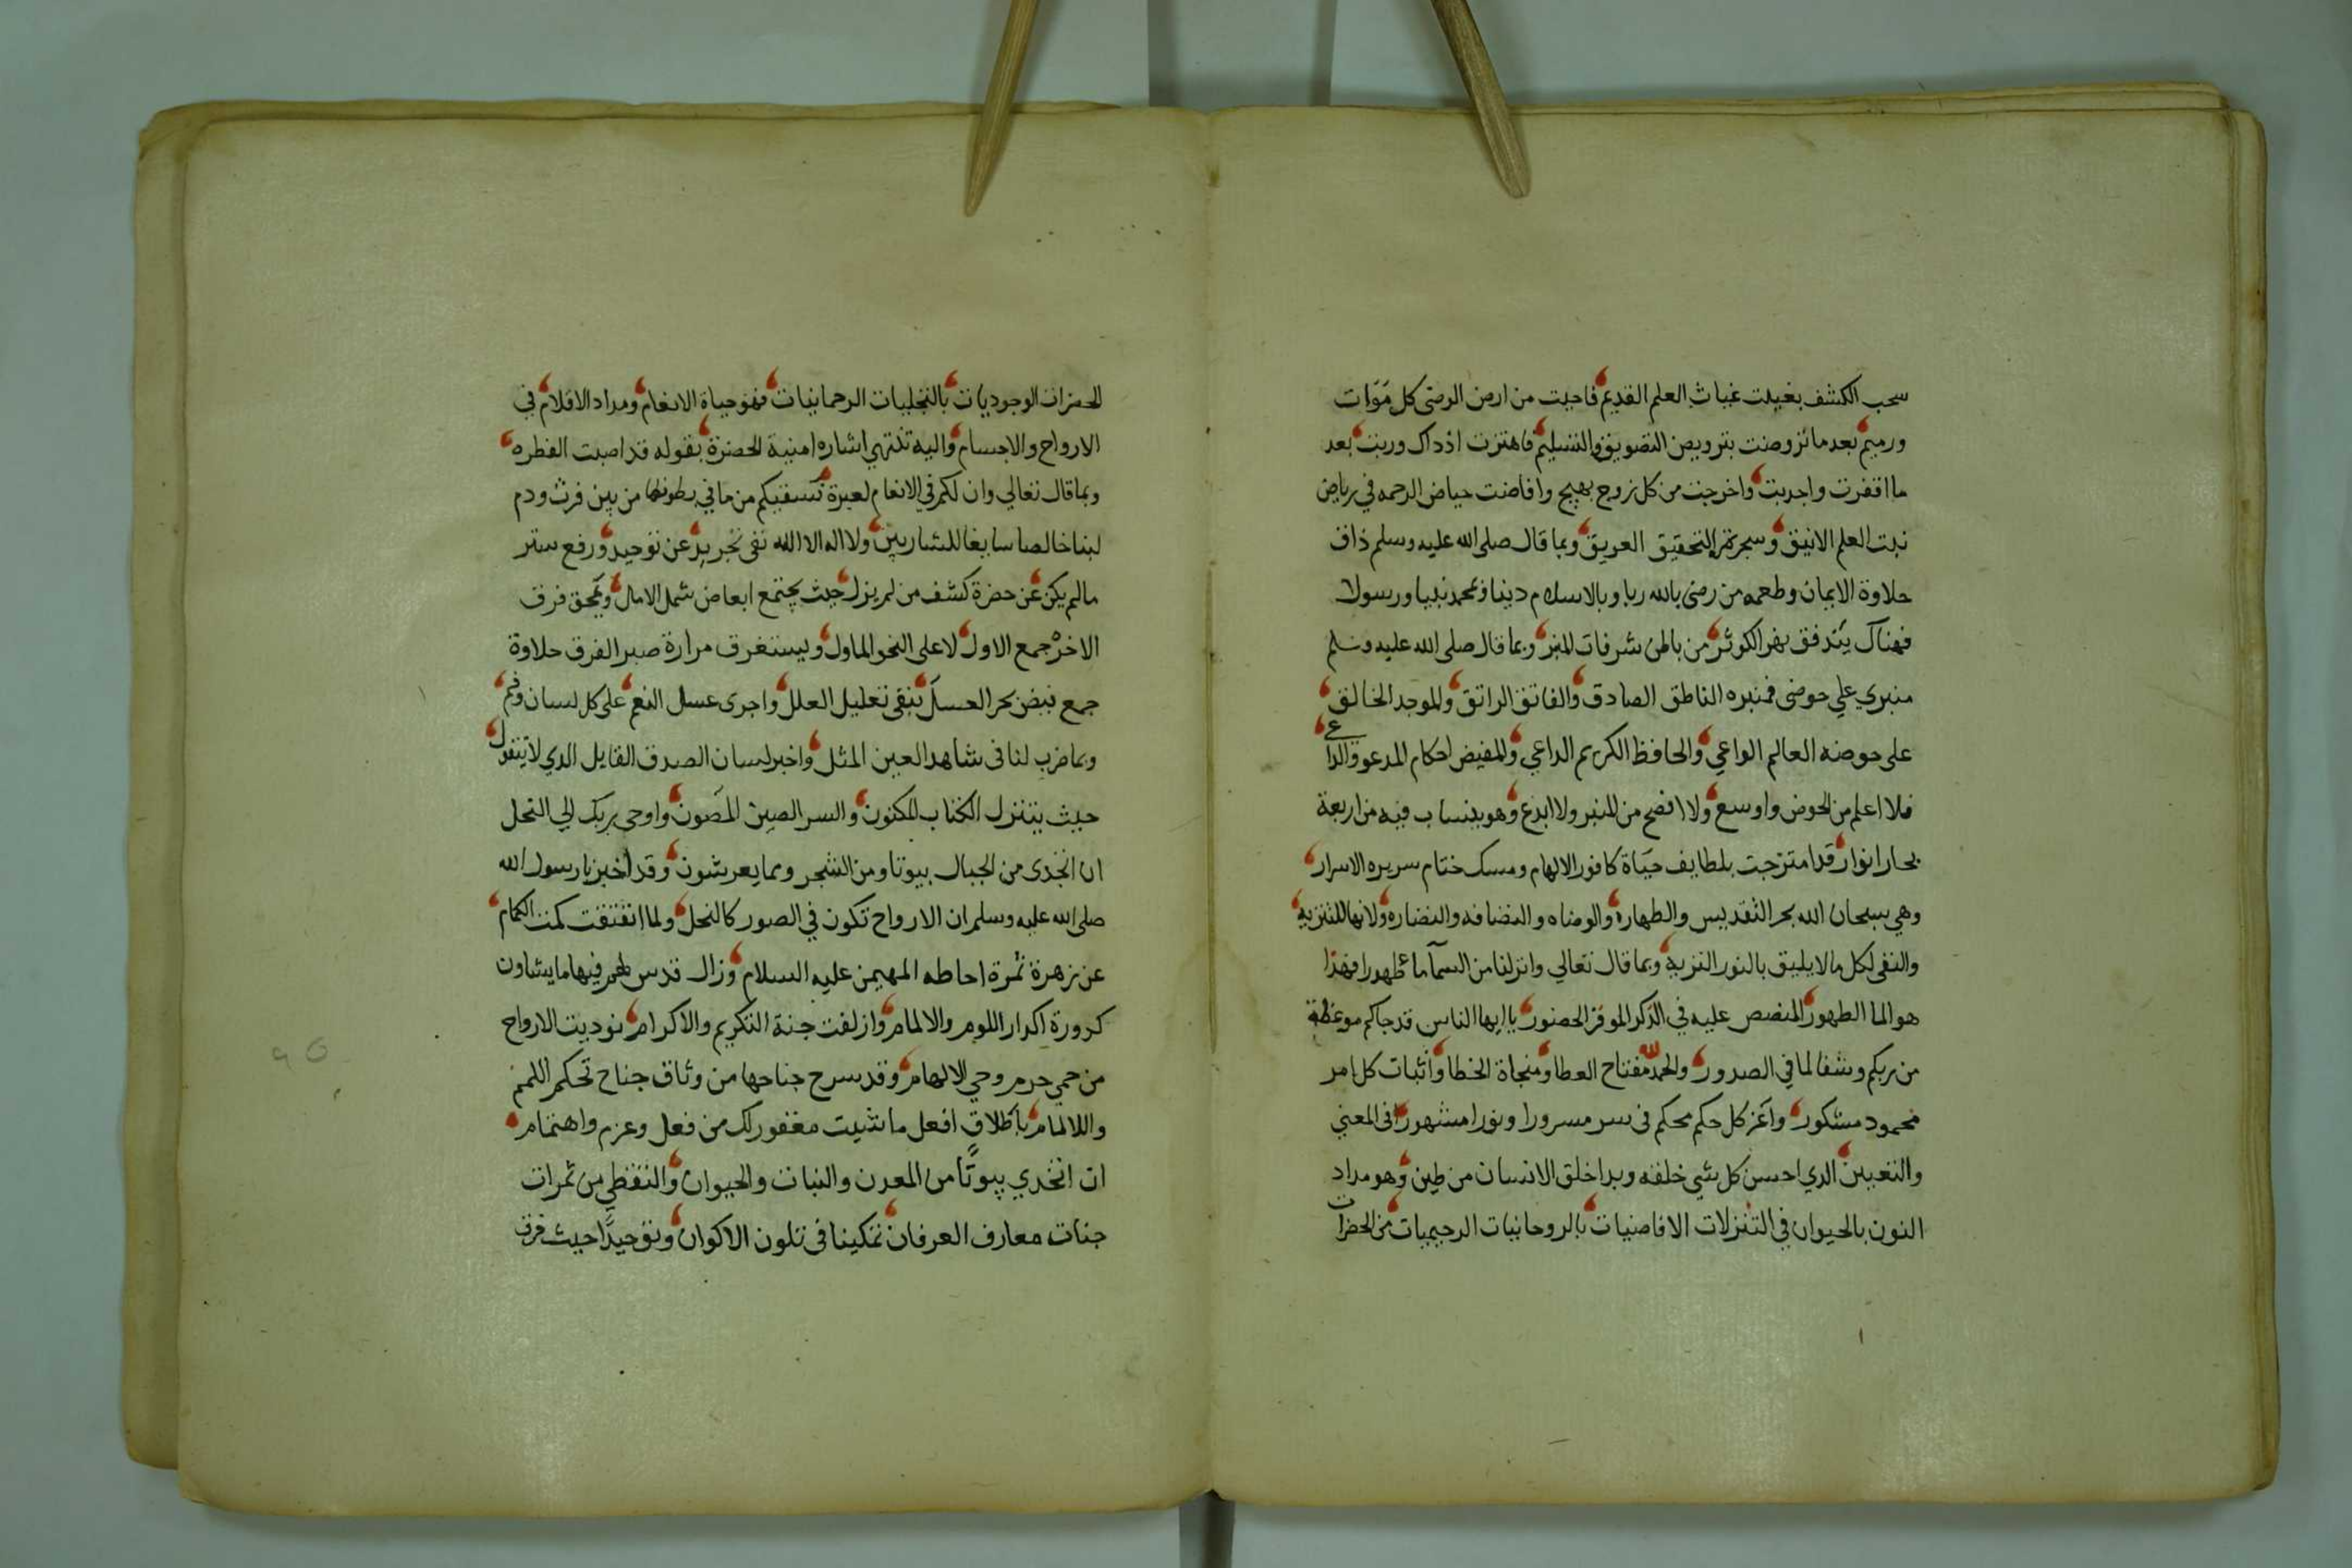 سحب الكشف بغيلت غياث العلم القديم فاحيت من ارض الرضى كل مَوَات
ورميم بعد ما تروضت بترويض التصويق والتسليم فاهتزت اذ ذاك وربت بعد
ما اقفرت واجدبت واخرجت من كل زوج بهيج وافاضت حياض الرحمه في رياض
نبت العلم الانيق وسجر ثمر التحقيق العريق وبما قال صلى الله عليه وسلم ذاق
حلاوة الايمان وطعمه من رضى بالله ربا وبالاسلام دينا وبمحمد نبيا ورسولا
فهناك يتدفق بهر الكوثر من باطن شرفات المنبر وبما قال صلى الله عليه وسلم
منبري علي حوضى فمنبره الناطق الصادق والفاتق الراتق والموجد الخالق
على حوضه العالم الواعي والحافظ الكريم الداعي والمفيض احكام المدعو والداع
فلا اعلم من الحوض واوسع ولا افصح من المنبر ولا ابدع وهو ينساب فيه من اربعة
بحار انوار قد امتزجت بلطايف حيَاة كافور الالهام ومسك ختام سريره الاسرار
وهي سبحان الله بحر التقديس والطهاره والوضاه والنضافه والنضاره ولانها للتنزيه
والنفى لكل ما لا يليق بالنور النزيه وبما قال تعالي وانزلنا من السمآ مائ طهورا فهذا
هو الما الطهور المنصص عليه في الذكر الموقر الحضور يا ايها الناس قد جاكم موعظة
من ربكم وشفا لما في الصدور والحمد لله مفتاح العطا ومنجاة الخطا واثبات كل امر
محمود مشكور واعز كل حكم محكم فى سر مسرورا ونورا مشهورا فى المعني
والتعيين الدي احسن كل شي خلقه وبدا خلق الانسان من طين وهو مداد
النون بالحيوان في التنزلات الافاضيات بالروحانيات الرحيميات من الحضرات
الحضرات الوجوديات بالتجليات الرحمانيات فهو حياة الانعام ومداد الاقلام في
الارواح والاجسام واليه تنتهي اشاره امنية الحضرة بقوله قد اصبت الفطره
وبما قال تعالي وان لكم في الانعام لعبرة نسقيكم من ما في بطونها من بين فرث ودم
لبنا خالصا سايغا للشاربين ولا اله الا الله نفى تجريد عن توحيد ورفع ستر
ما لم يكن عن حضرة كشف من لم يزل حيث يجتمع ابعاض شمل الامال ويمحق فرق
الاخر جمع الاول لا على النحو الماول ويستغرق مرارة صبر الفرق حلاوة
جمع فيض بحر العسل بنقى تعليل العلل واجرى عسل النعم على كل لسان وفم
وبما ضرب لنا فى شاهد العين المثل واخبر لسان الصدق القايل الدي لا يتقول
حيث يتنزل الكتاب المكنون والسر الصين المصون واوحى ربك الي النحل
ان اتخذى من الجبال بيوتا ومن الشجر ومما يعرشون وقد اخبرنا رسول الله
صلى الله عليه وسلم ان الارواح تكون في الصور كالنحل ولما انفتقت كمت الكمام
عن زهرة ثمرة احاطه المهيمن عليه السلام وزال قدس لهم فيها ما يشاون
كدورة اكدار اللوم والالمام وازلفت جنة التكريم والاكرام نوديت الارواح
من حمي حرم وحي الالهام وقد سرح جناحها من وثاق جناح تحكم اللمم
واللالمام باطلاق افعل ما شيت مغفور لك من فعل وعزم واهتمام
ان اتخدي بيوتًا من المعدن والنبات والحيوان والتقطي من ثمرات
جنات معارف العرفان تمكينا فى تلون الاكوان وتوحيدًا حيث فرق